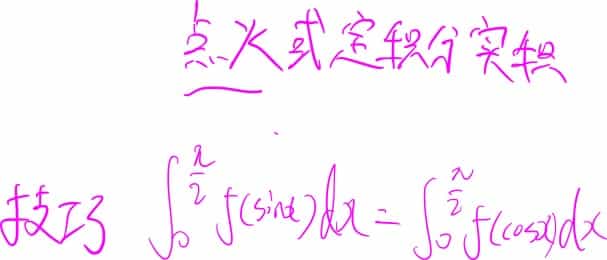 点火式定积分实积
技巧 ∫₀^{π/2} f(sinx)dx = ∫₀^{π/2} f(cosx)dx